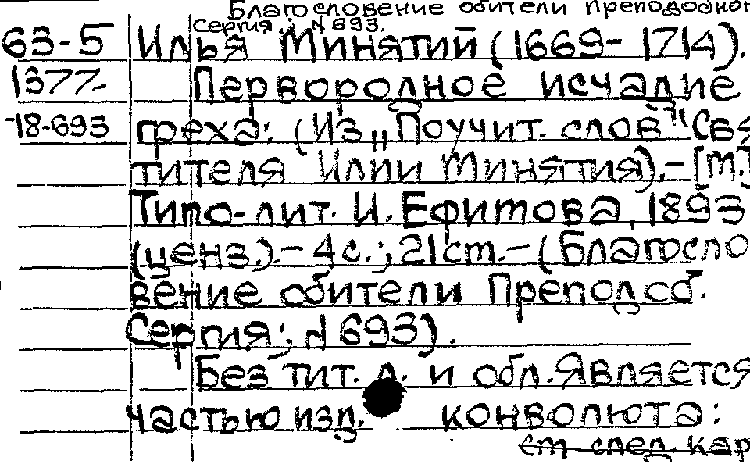 Благословение обители преподобног
Сергия; N 693.
63-5 Илья Минятий (1669-1714).
1377 Первородное исчадие
18-693 греха: (Из „Поучит. слов" Свя
тителя Илии Минятия).-[М.]
Типо-лит. И. Ефимова, 1893
(ценз.).- 4 с.; 21 см.- (Благосло
вение обители Преподоб.
Сергия; N 693).
Без тит. л. и обл. Является
частью изд. конволюта:
см след. кар